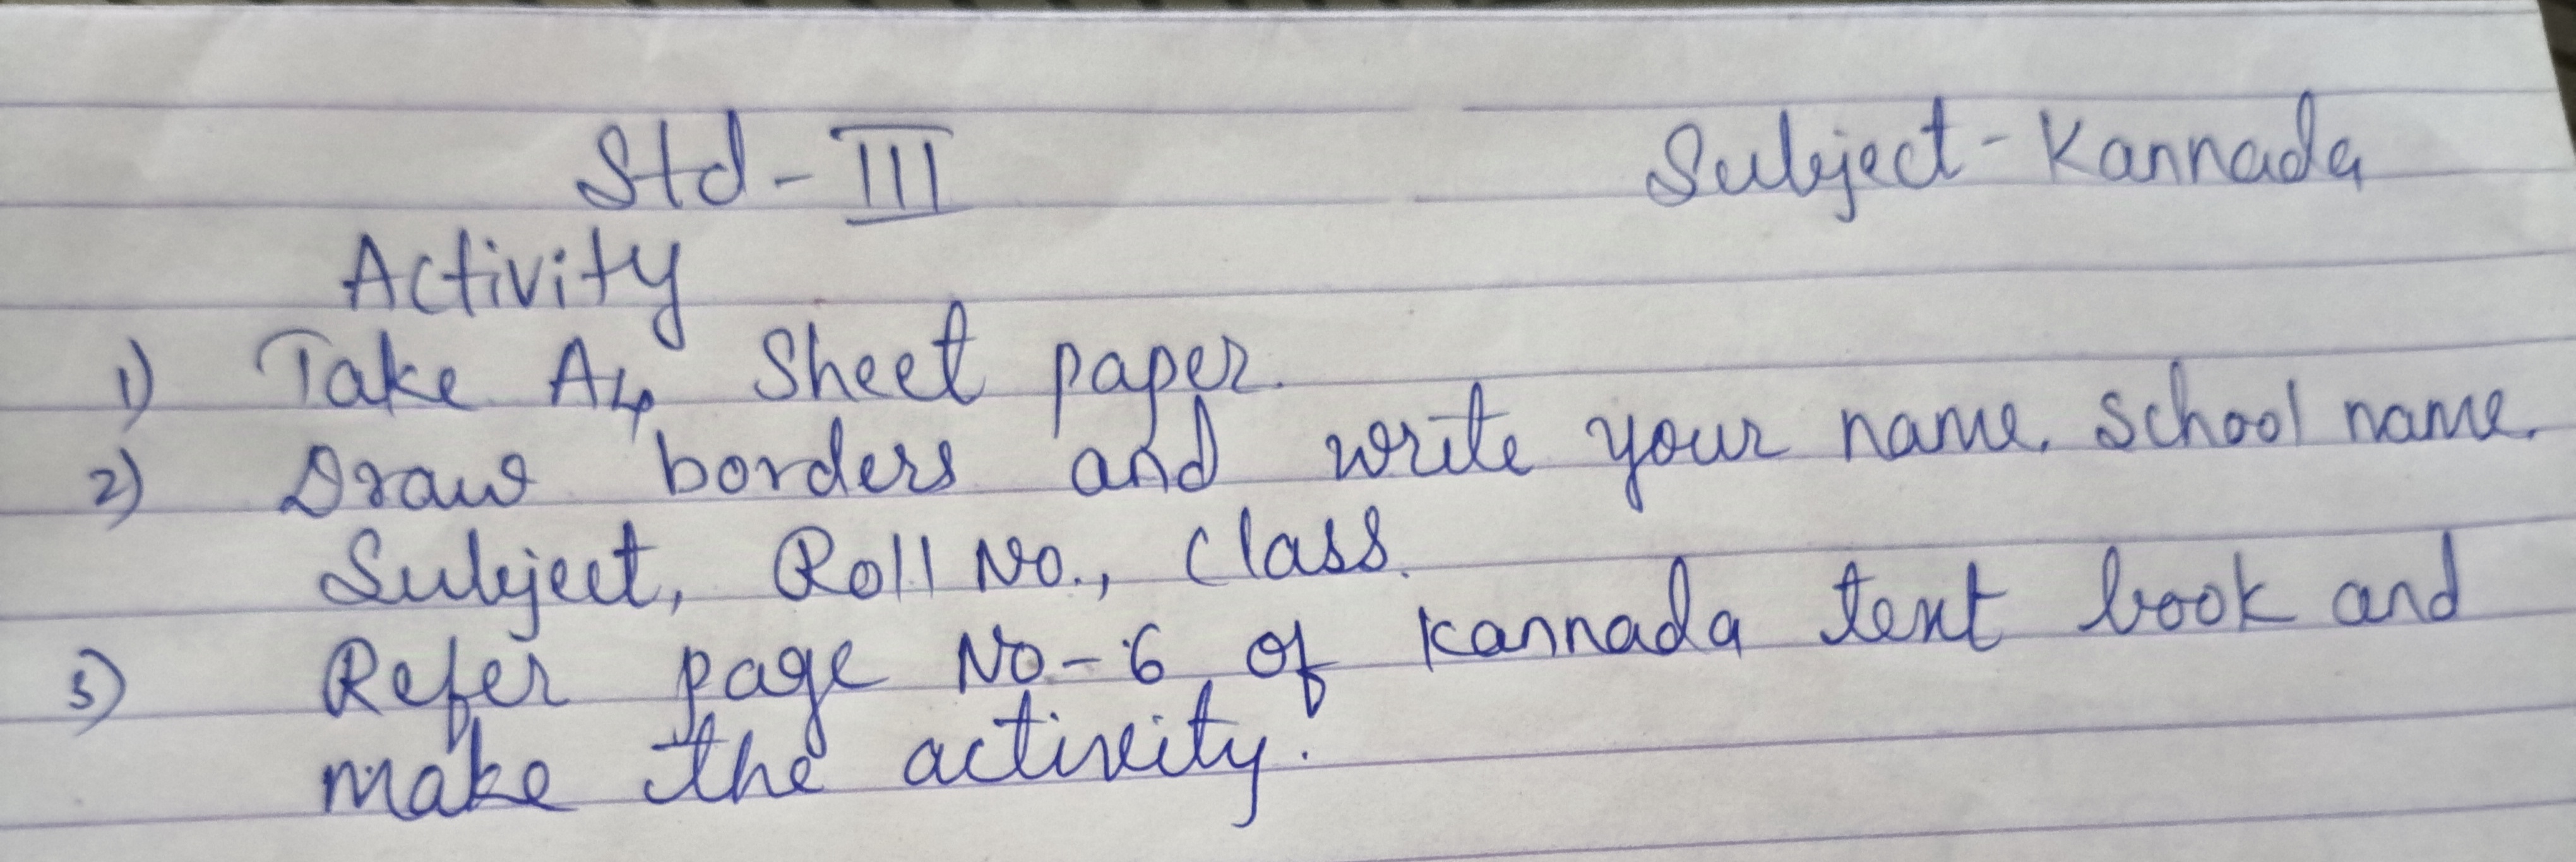 Std - III Subject - Kannada
Activity
1) Take A4 Sheet paper.
2) Draw borders and write your name. School name.
Subject, Roll No., Class.
3) Refer page No - 6 of Kannada text book and
make the activity.